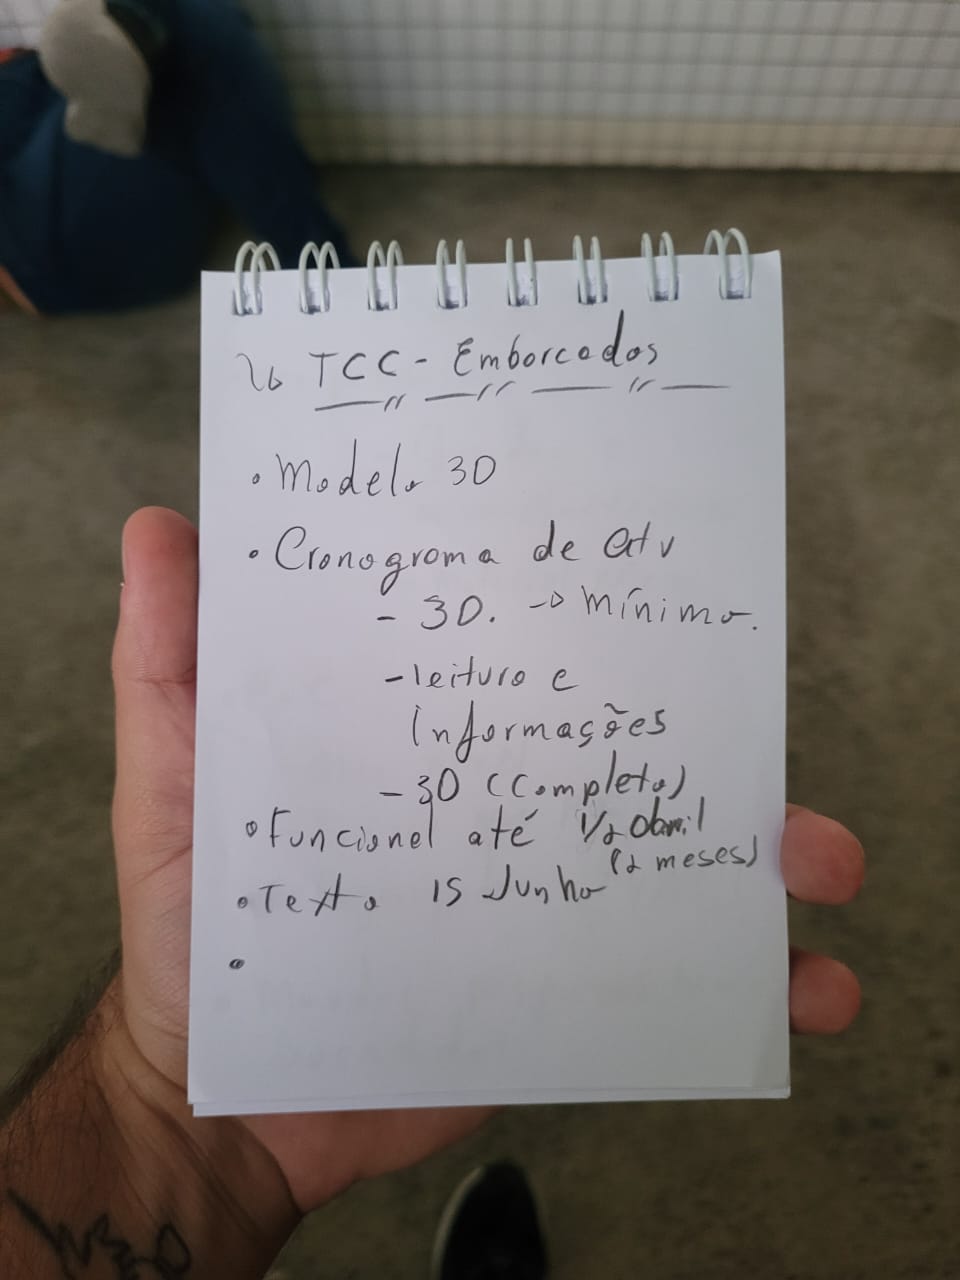 ↳ TCC - Embarcados
• Modelo 3D
• Cronograma de atv
- 3D. -> mínimo.
- leitura e
informações
- 3D (Completo)
• Funcional até 1/2 abril
(2 meses)
• Texto 15 Junho
•